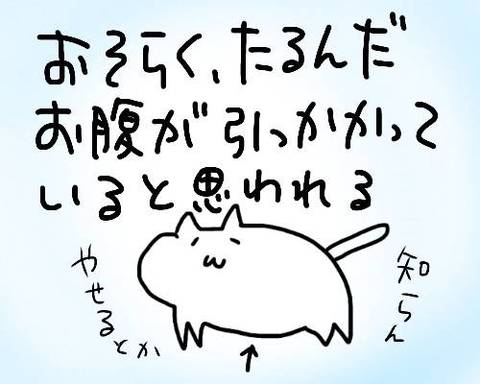 おそらく、たるんだ
お腹が引っかかって
いると思われる
知らん
やせるとか